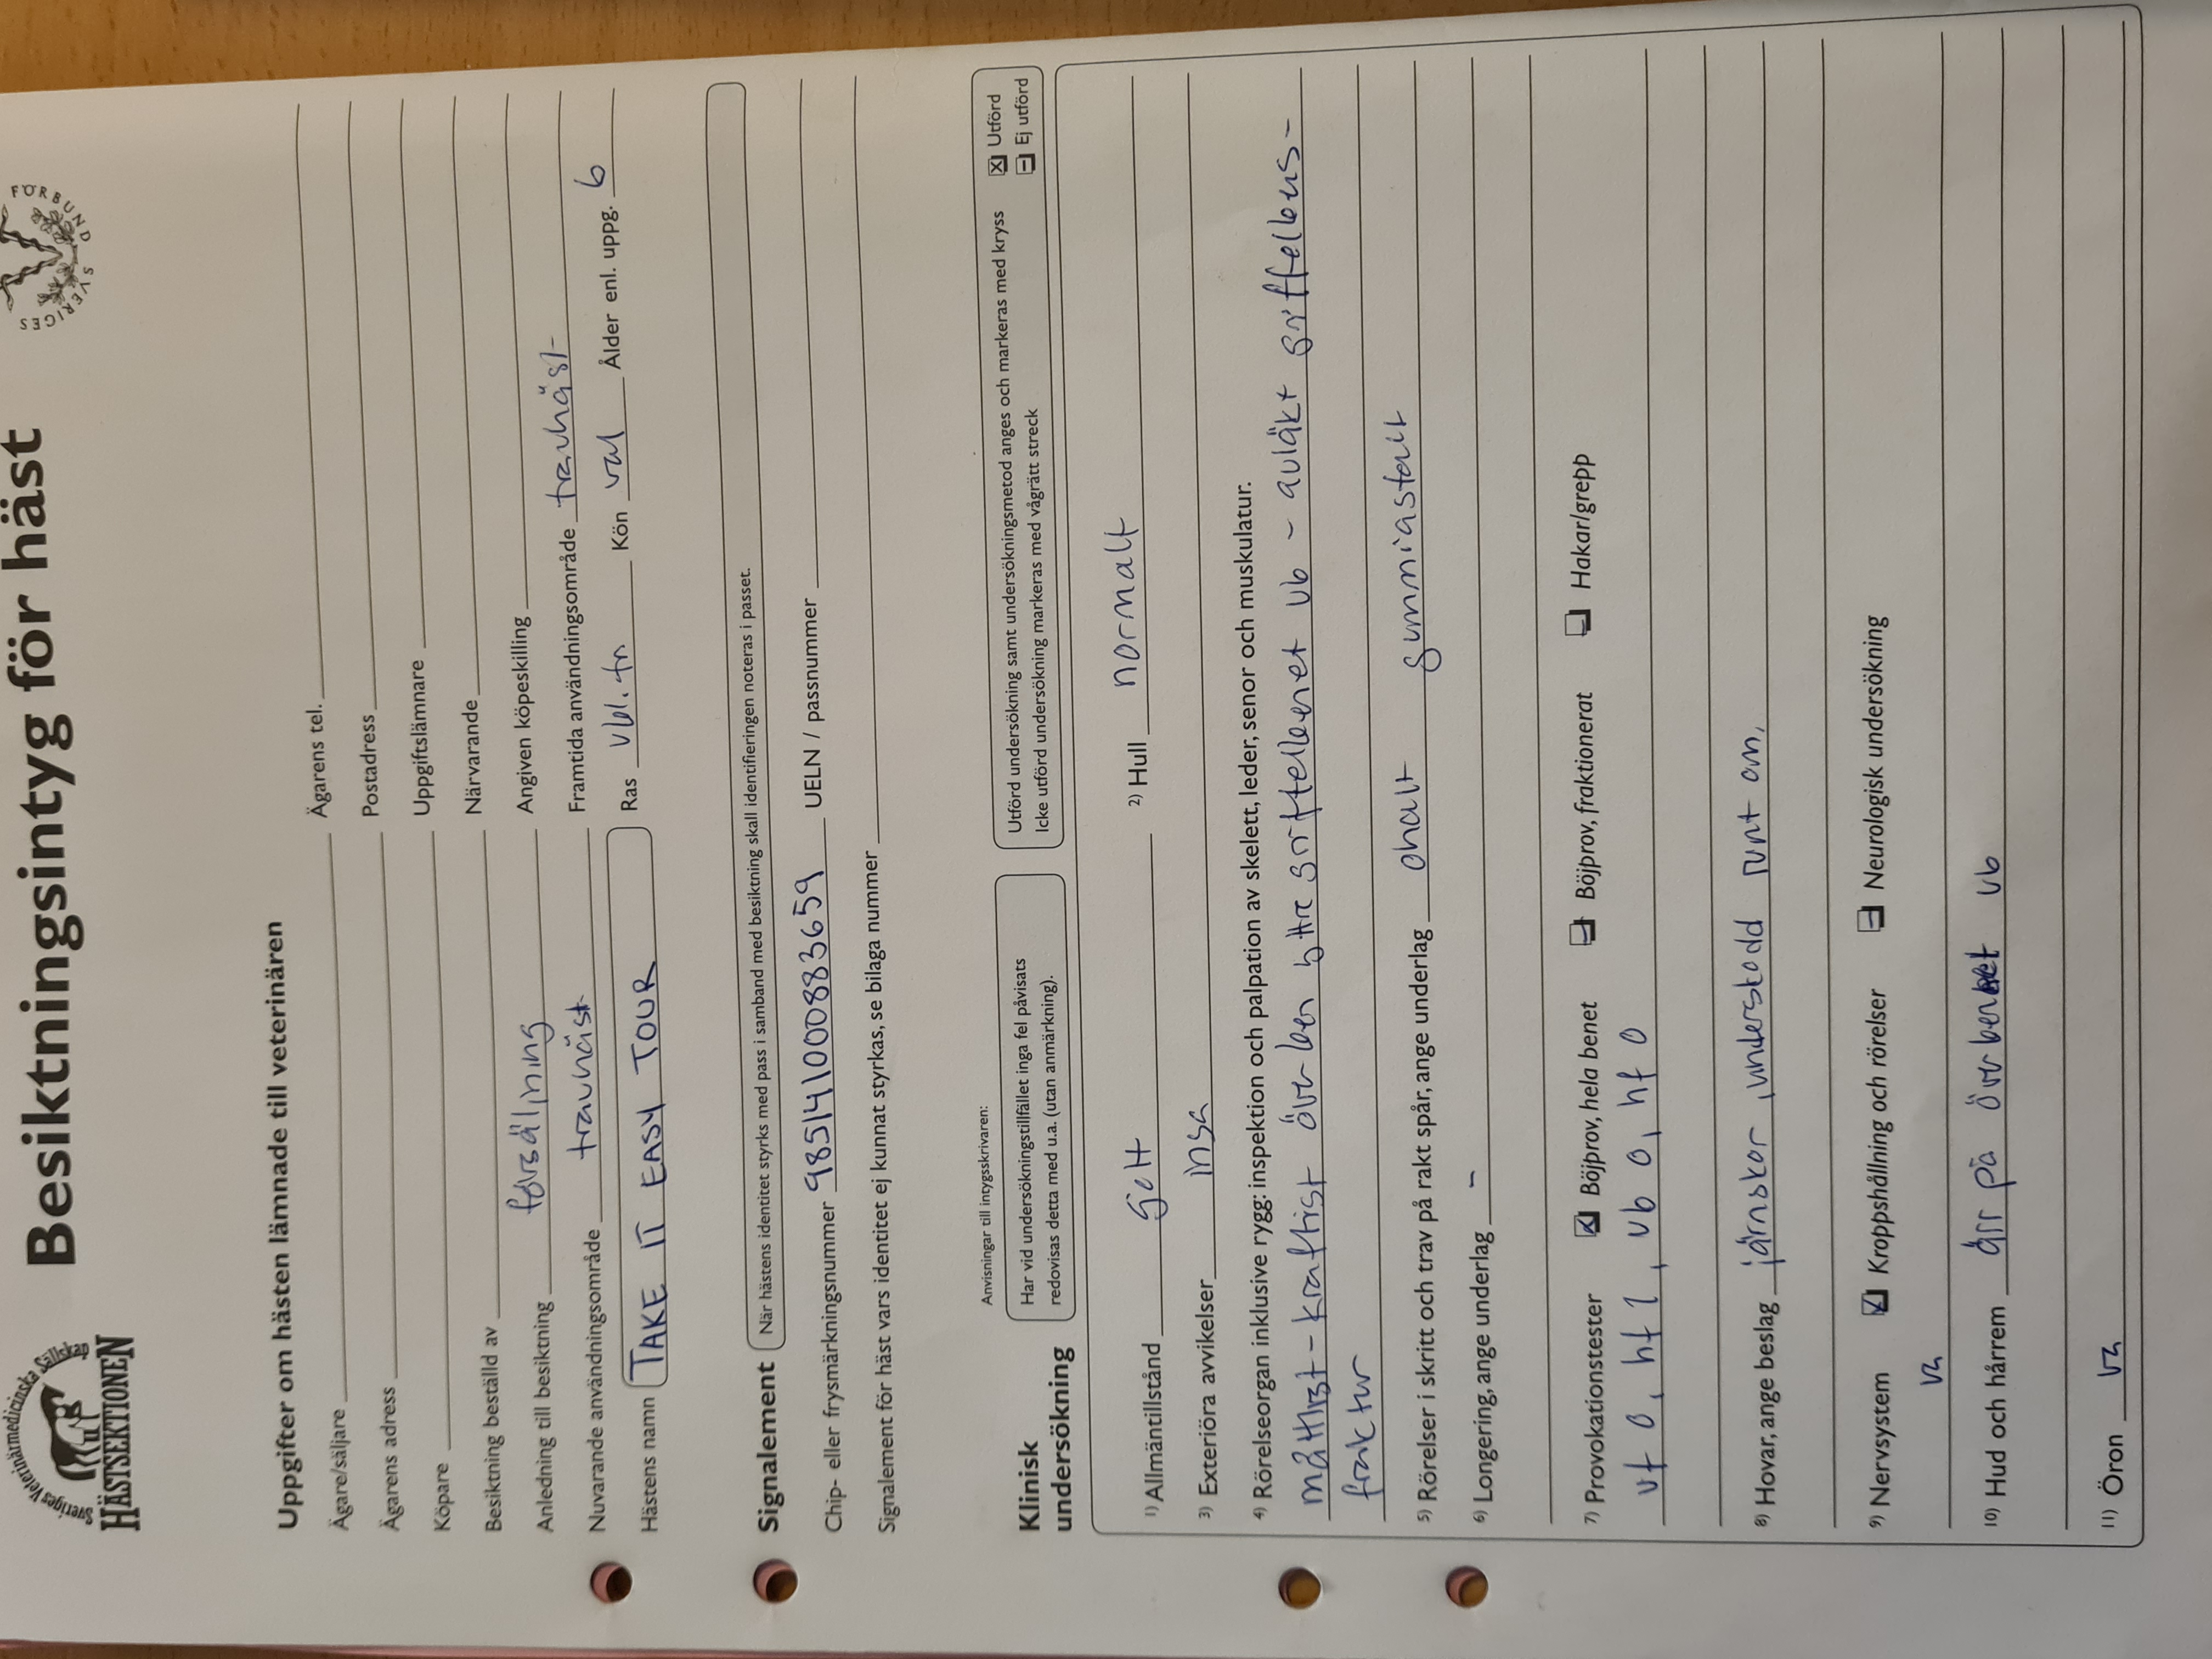 Sveriges Veterinärmedicinska Sällskap
HÄSTSEKTIONEN
Besiktningsintyg för häst
SVERIGES FÖRBUND
Uppgifter om hästen lämnade till veterinären
Ägare/säljare Ägarens tel.
Ägarens adress Postadress
Köpare Uppgiftslämnare
Besiktning beställd av Närvarande
Anledning till besiktning försäljning Angiven köpeskilling
Nuvarande användningsområde travhäst Framtida användningsområde travhäst
Hästens namn TAKE IT EASY TOUR Ras vbl.tr Kön val Ålder enl. uppg. 6
Signalement När hästens identitet styrks med pass i samband med besiktning skall identifieringen noteras i passet.
Chip- eller frysmärkningsnummer 985141000883659 UELN / passnummer
Signalement för häst vars identitet ej kunnat styrkas, se bilaga nummer
Anvisningar till intygsskrivaren:
Klinisk undersökning
Har vid undersökningstillfället inga fel påvisats
redovisas detta med u.a. (utan anmärkning).
Utförd undersökning samt undersökningsmetod anges och markeras med kryss
Icke utförd undersökning markeras med vågrätt streck
Utförd
Ej utförd
1) Allmäntillstånd gott 2) Hull normalt
3) Exteriöra avvikelser inga
4) Rörelseorgan inklusive rygg: inspektion och palpation av skelett, leder, senor och muskulatur.
måttligt - kraftigt överben yttre griffelbenet vb - avläkt griffelbens-
fraktur
5) Rörelser i skritt och trav på rakt spår, ange underlag ohalt gummiasfalt
6) Longering, ange underlag -
7) Provokationstester Böjprov, hela benet Böjprov, fraktionerat Hakar/grepp
vf 0, hf 1, vb 0, hf 0
8) Hovar, ange beslag järnskor, underskodd runt om,
9) Nervsystem Kroppshållning och rörelser Neurologisk undersökning
ua
10) Hud och hårrem ärr på överbenet vb
11) Öron ua